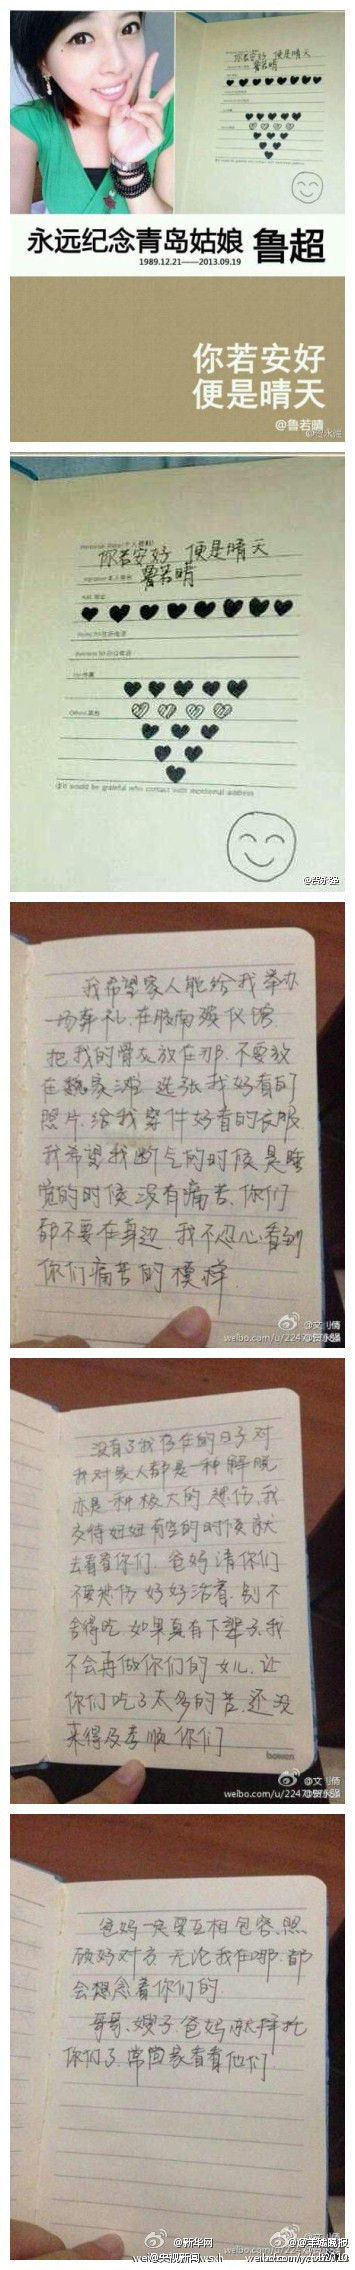 你若安好 便是晴天
鲁若晴
永远纪念青岛姑娘 鲁超
1989.12.21——2013.09.19
你若安好
便是晴天
@鲁若晴
你若安好 便是晴天
鲁若晴
Others/其他
It would be grateful who contact with mentional address
我希望家人能给我举办
一场葬礼.在胶南殡仪馆
把我的骨灰放在那.不要放
在魏家滩 选张我好看的
照片.给我穿件好看的衣服
我希望我断气的时候是睡
觉的时候没有痛苦.你们
都不要在身边 我不忍心看到
你们痛苦的模样
@文刂倩
weibo.com/u/2247
没有了我存在的日子.对
我对家人都是一种解脱
亦是一种极大的悲伤.我
交待妞妞有空的时候就
去看看你们. 爸妈请你们
不要悲伤 好好活着.别不
舍得吃.如果真有下辈子.我
不会再做你们的女儿.让
你们吃了太多的苦.还没
来得及孝顺你们
bowen
@文刂倩
weibo.com/u/2247
爸妈一定要互相包容.照
顾好对方 无论我在哪.都
会想念着你们的
哥哥、嫂子.爸妈就拜托
你们了.常回家看看他们
@新华网
@羊城晚报
@央视新闻